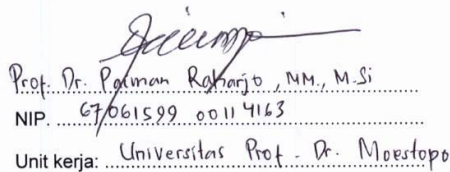 Prof. Dr. Paiman Raharjo, MM., M.Si
NIP. 67061599 00114163
Unit kerja: Universitas Prof. Dr. Moestopo